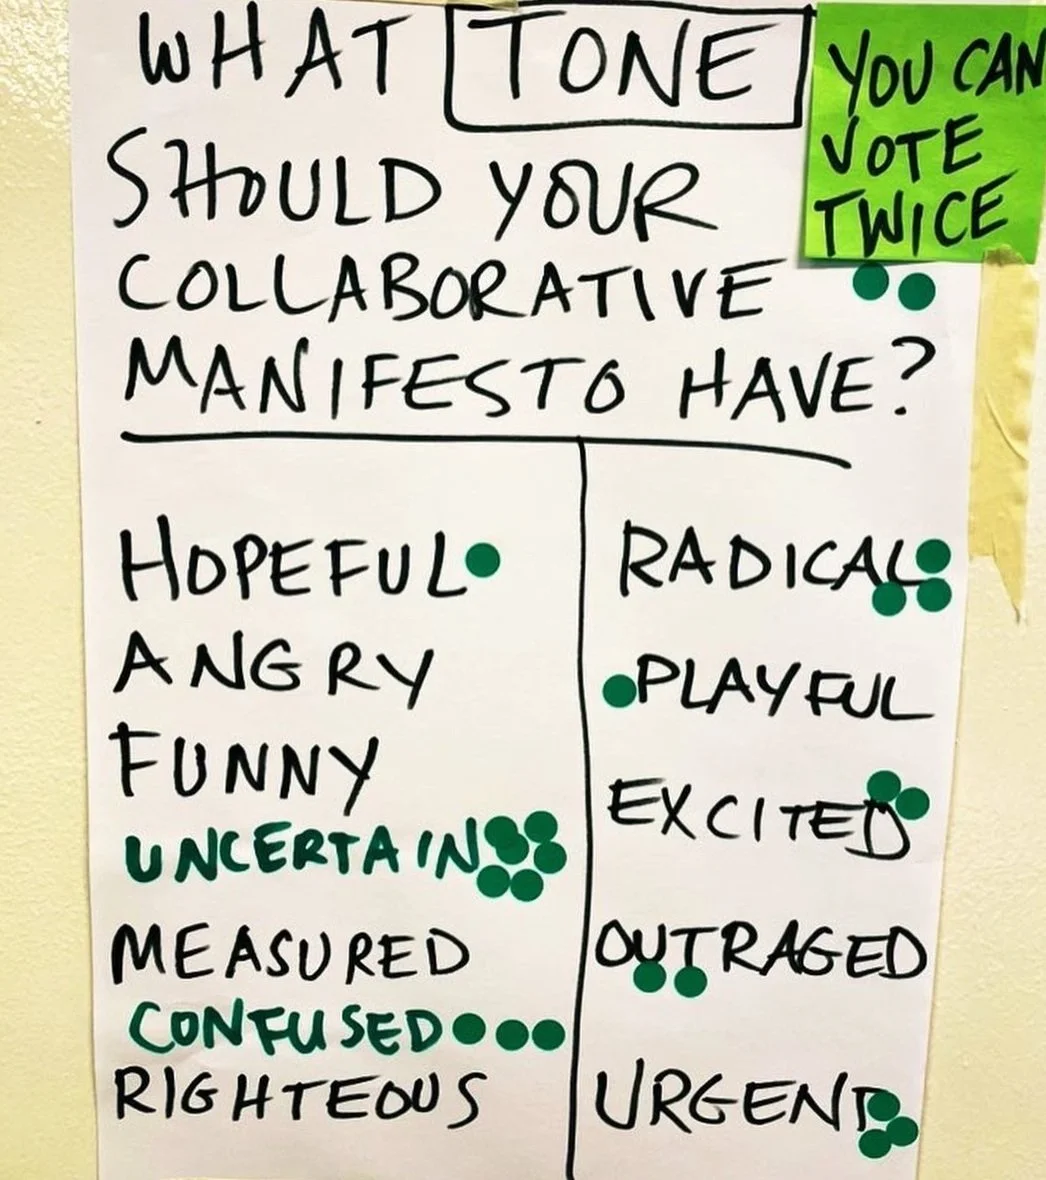 WHAT TONE
SHOULD YOUR
COLLABORATIVE
MANIFESTO HAVE?
YOU CAN
VOTE
TWICE
HOPEFUL
ANGRY
FUNNY
UNCERTAIN
MEASURED
CONFUSED
RIGHTEOUS
RADICAL
PLAYFUL
EXCITED
OUTRAGED
URGENT